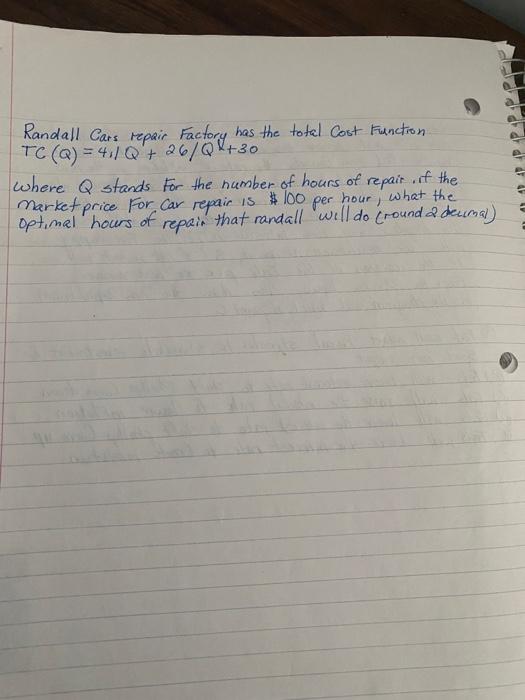 Randall Cars repair Factory has the total Cost Function
TC (Q) = 4.1 Q + 26/Q +30
where Q stands for the number of hours of repair . if the
market price For Car repair is $ 100 per hour, what the
optimal hours of repair that randall will do (round 2 decimal)